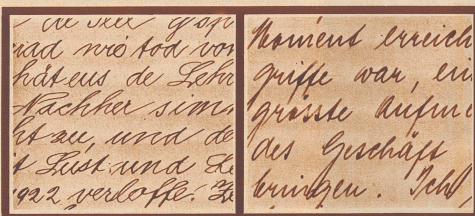 de
wie tod vor
de Lehr
Nachher sim
ht zu, und de
t Lust und
1922 verloffe.
Moment erreich
griffe war, ei
grösste Aufm
des Geschäft
bringen. Ich